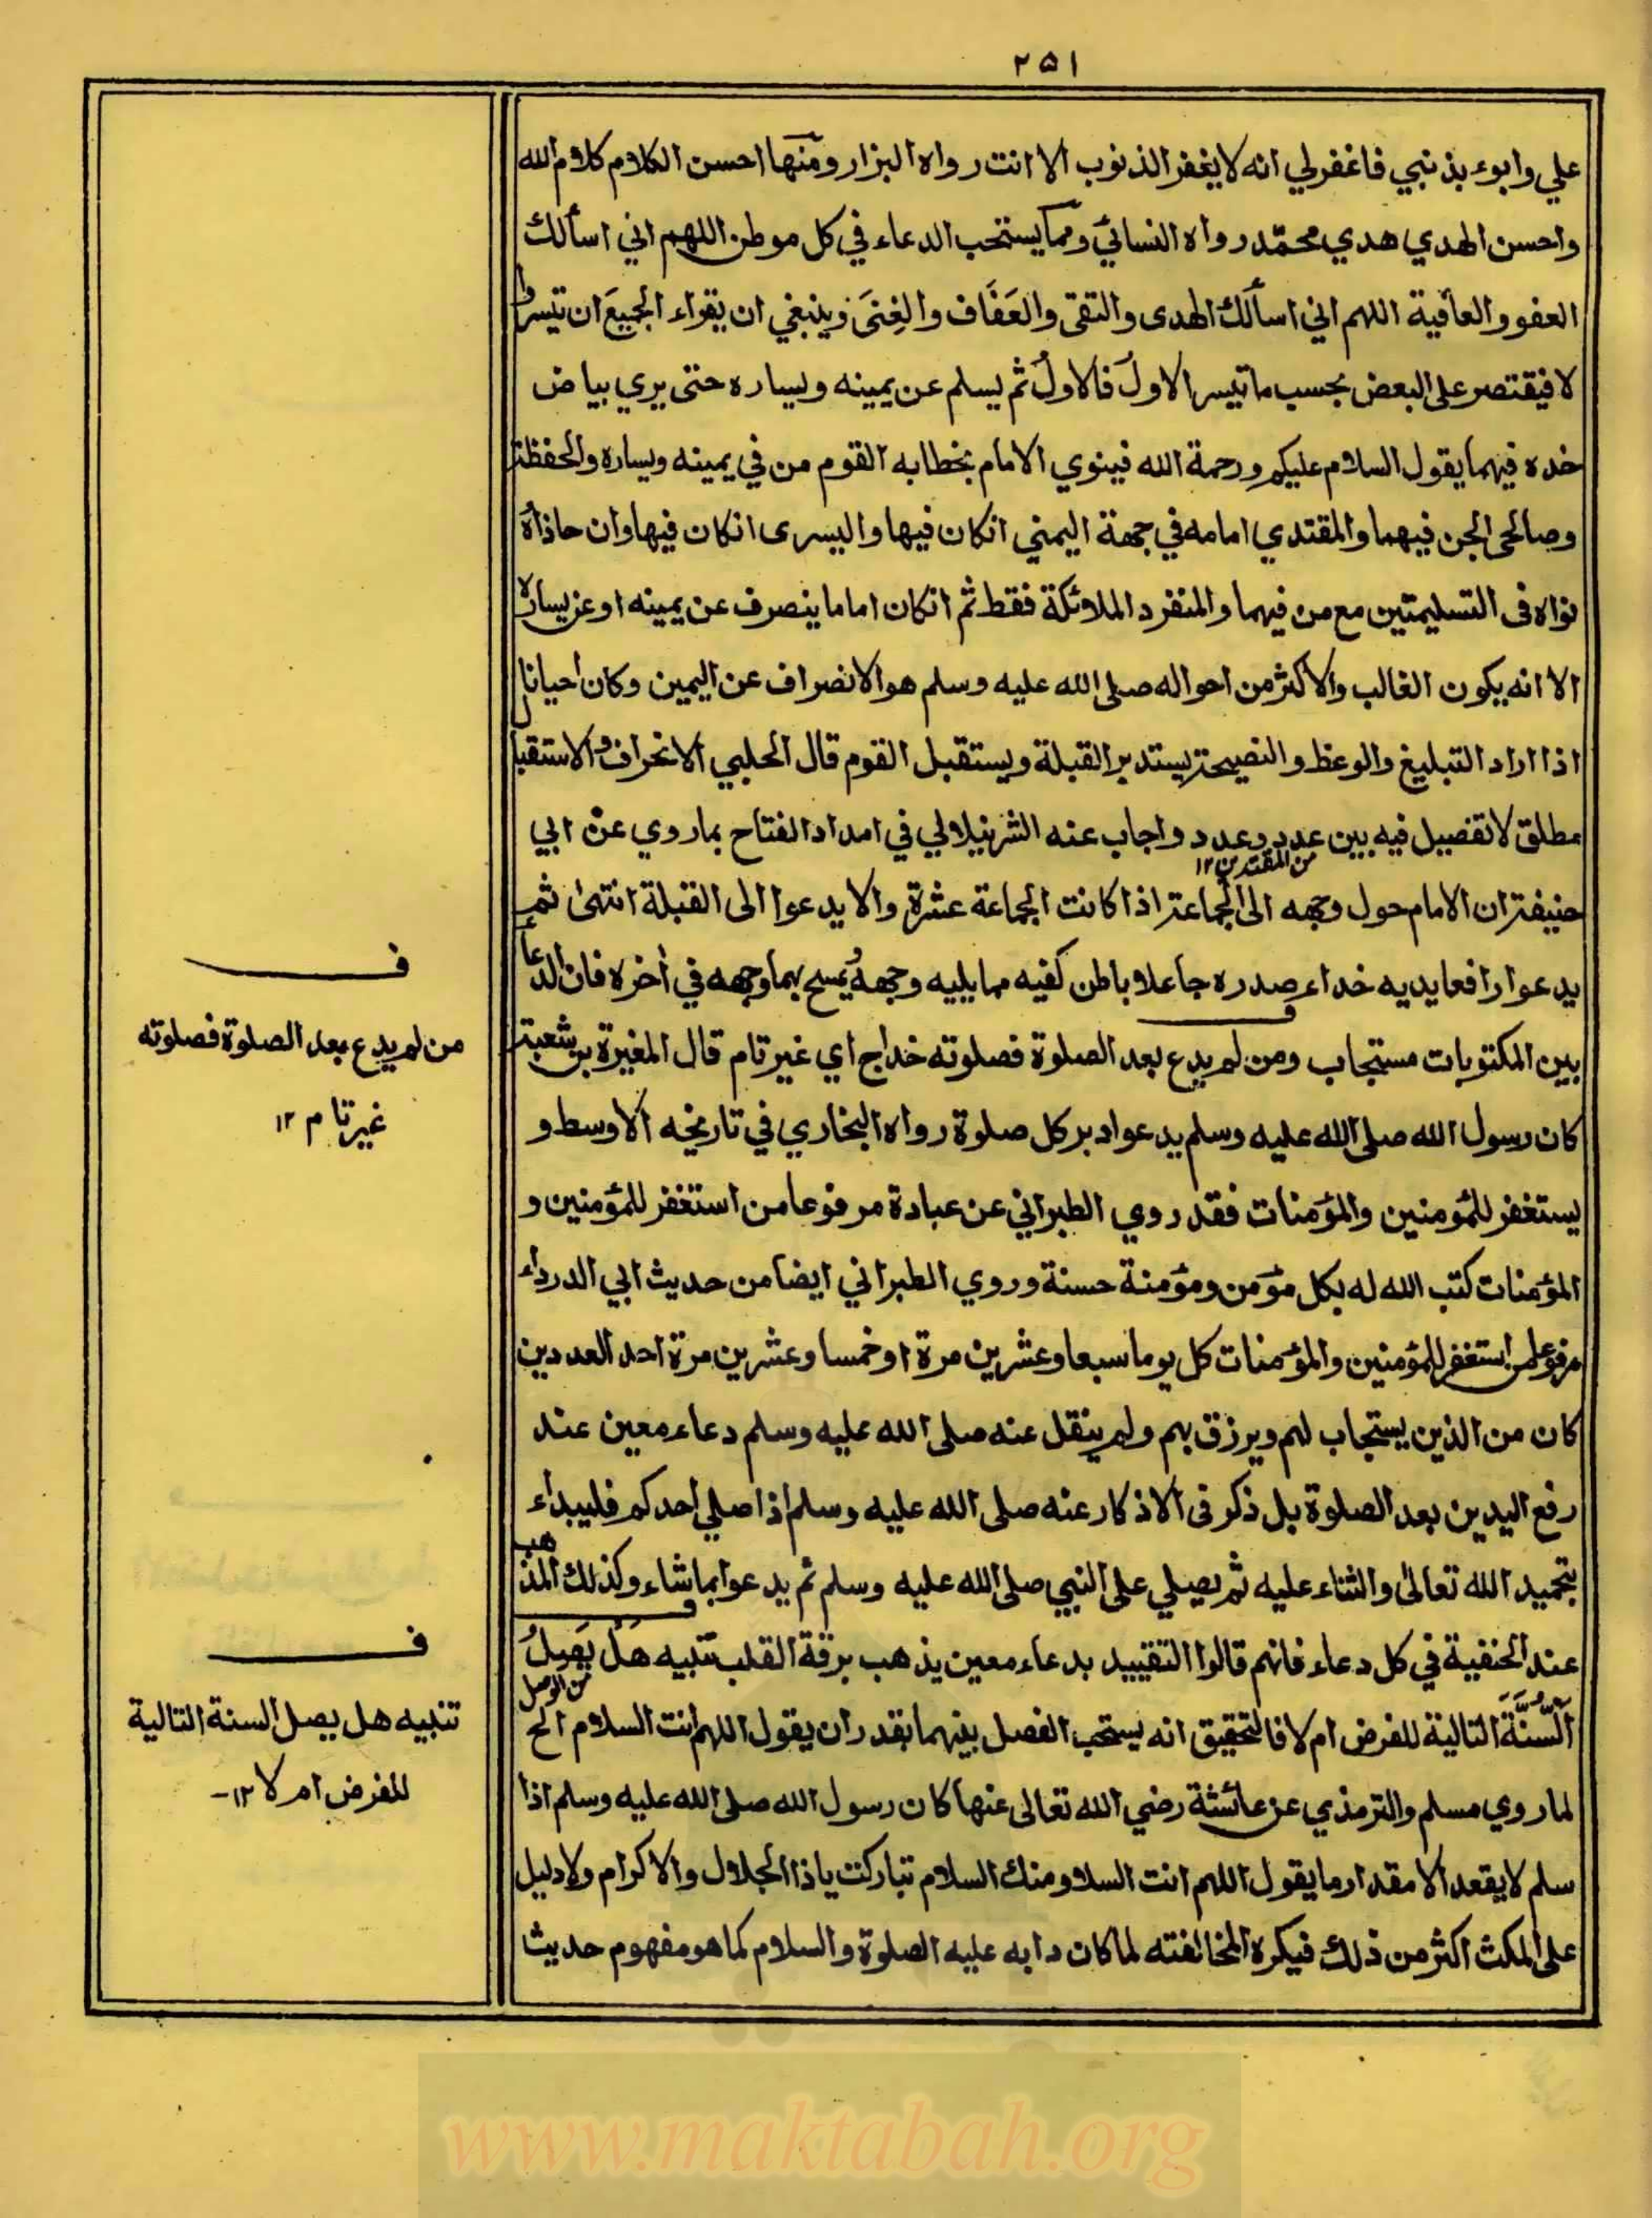 ٢٥١
علي وابوء بذنبي فاغفرلي انه لا يغفر الذنوب الا انت رواه البزار ومنها احسن الكلام كلام الله
واحسن الهدي هدي محمّد رواه النسائي ومما يستحب الدعاء في كل موطن اللهم اني اسألك
العفو والعافية اللهم اني اسألك الهدى والتقى والعَفَاف والغِنَى وينبغي ان يقراء الجميعَ ان تيسر وا
لا فيقتصر على البعض بحسب ما تيسر الاولَ فالاولَ ثم يسلم عن يمينه ويساره حتى يري بياض
خده فيهما يقول السلام عليكم ورحمة الله فينوي الامام بخطابه القوم من في يمينه ويساره والحفظة
وصالحى الجن فيهما والمقتدي امامه في جهة اليمنى انكان فيها واليسرى انكان فيها وان حاذاه
نواه فى التسليمتين مع من فيهما والمنفرد الملائكة فقط ثم انكان اماما ينصرف عن يمينه او عن يساره
الا انه يكون الغالب والاكثر من احواله صلى الله عليه وسلم هو الانصراف عن اليمين وكان احيانا
اذا اراد التبليغ والوعظ والنصيحة يستدبر القبلة ويستقبل القوم قال الحلبي الانحراف والاستقبال
مطلق لا تفصيل فيه بين عدد وعدد واجاب عنه الشرنبلالي في امداد الفتاح بما روي عن ابي
من المقتدين ١٢
حنيفة ان الامام حول وجهه الى الجماعة اذا كانت الجماعة عشرة والا يدعوا الى القبلة انتهى ثم
يدعوا رافعا يديه خداء صدره جاعلا باطن كفيه مما يليه وجهه يمسح بهما وجهه في اخره فان الدعاء
بين المكتوبات مستجاب ومن لم يدع بعد الصلوة فصلوته خداج اي غير تام قال المغيرة بن شعبة
كان رسول الله صلى الله عليه وسلم يدعوا دبر كل صلوة رواه البخاري في تاريخه الاوسط و
يستغفر للمؤمنين والمؤمنات فقد روي الطبراني عن عبادة مرفوعا من استغفر للمؤمنين و
المؤمنات كتب الله له بكل مؤمن ومؤمنة حسنة وروي الطبراني ايضا من حديث ابي الدرداء
مرفوعا من استغفر للمؤمنين والمؤمنات كل يوما سبعا وعشرين مرة او خمسا وعشرين مرة احد العددين
كان من الذين يستجاب لهم ويرزق بهم ولم ينقل عنه صلى الله عليه وسلم دعاء معين عند
رفع اليدين بعد الصلوة بل ذكر فى الاذكار عنه صلى الله عليه وسلم اذا صلي احدكم فليبداء
بتحميد الله تعالى والثناء عليه ثم يصلي على النبي صلى الله عليه وسلم ثم يدعوا بما شاء وكذلك المذهب
عند الحنفية في كل دعاء فانهم قالوا التقييد بدعاء معين يذهب برقة القلب تنبيه هَلْ يَصِلُ
من الوصل
السُّنَّةَ التالية للفرض ام لا فالتحقيق انه يستحب الفصل بينهما بقدر ان يقول اللهم انت السلام الخ
لما روي مسلم والترمذي عن عائشة رضي الله تعالى عنها كان رسول الله صلى الله عليه وسلم اذا
سلم لا يقعد الا مقدار ما يقول اللهم انت السلا ومنك السلام تباركت ياذا الجلال والاكرام ولا دليل
على المكث اكثر من ذلك فيكره المخالفته لما كان دابه عليه الصلوة والسلام كما هو مفهوم حديث
ف
من لم يدع بعد الصلوة فصلوته
غير تام ١٢
ف
تنبيه هل يصل السنة التالية
للفرض ام لا ١٢-
www.maktabah.org